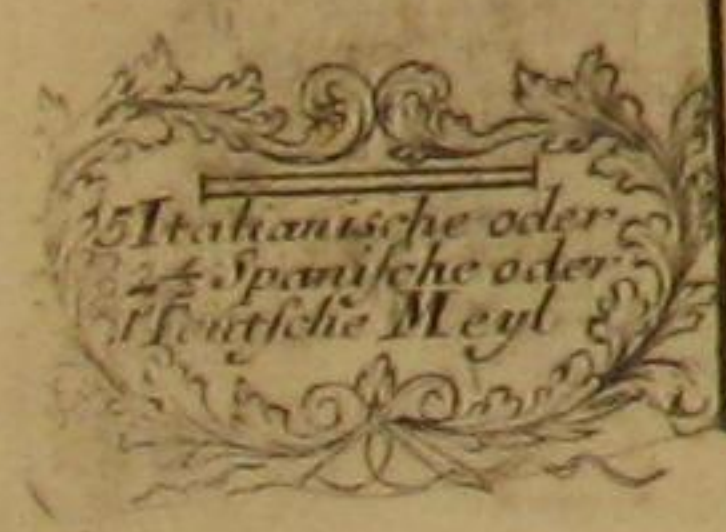 5 Italianische oder
2½ Spanische oder
1 Teutsche Meyl